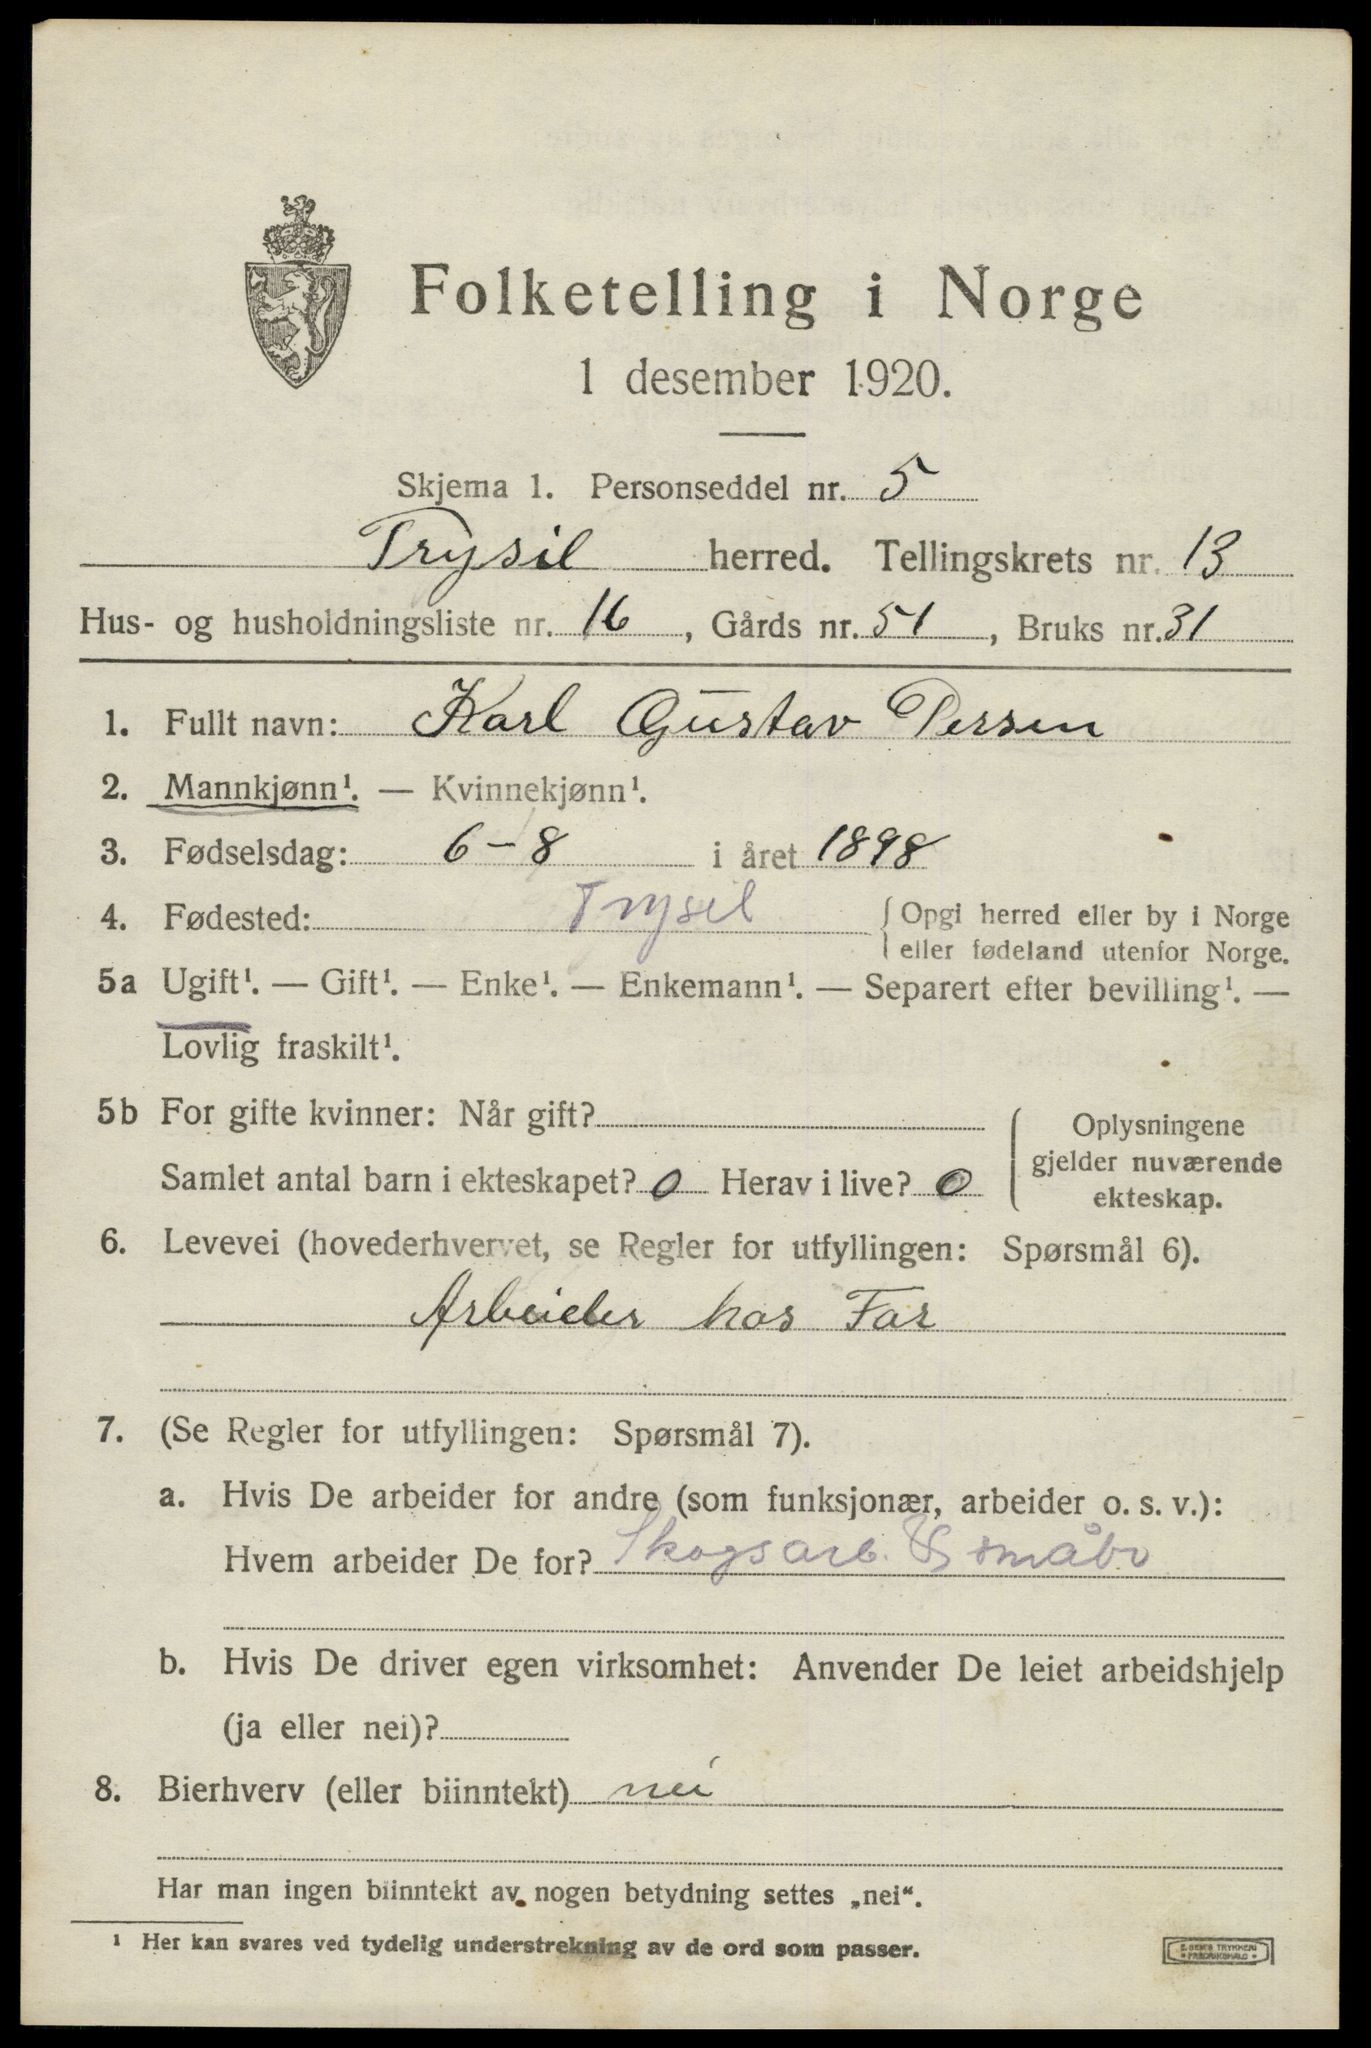 Folketelling i Norge
1 desember 1920.
Skjema 1. Personseddel nr. 5
Trysil herred. Tellingskrets nr. 13
Hus- og husholdningsliste nr. 16, Gårds nr. 51, Bruks nr. 31
1. Fullt navn: Karl Gustav Persen
2. Mannkjønn¹. — Kvinnekjønn¹.
3. Fødselsdag: 6-8 i året 1898
4. Fødested: Trysil {Opgi herred eller by i Norge
eller fødeland utenfor Norge.
5a Ugift¹. — Gift¹. — Enke¹. — Enkemann¹. — Separert efter bevilling¹. —
Lovlig fraskilt¹.
5b For gifte kvinner: Når gift?
Samlet antal barn i ekteskapet? 0 Herav i live? 0
Oplysningene
gjelder nuværende
ekteskap.
6. Levevei (hovederhvervet, se Regler for utfyllingen: Spørsmål 6).
Arbeider hos Far
7. (Se Regler for utfyllingen: Spørsmål 7).
a. Hvis De arbeider for andre (som funksjonær, arbeider o. s. v.):
Hvem arbeider De for? Skogsarb. småbr
b. Hvis De driver egen virksomhet: Anvender De leiet arbeidshjelp
(ja eller nei)?
8. Bierhverv (eller biinntekt) nei
Har man ingen biinntekt av nogen betydning settes „nei“.
¹ Her kan svares ved tydelig understrekning av de ord som passer.
E. SEM'S TRYKKERI
FREDRIKSHALD